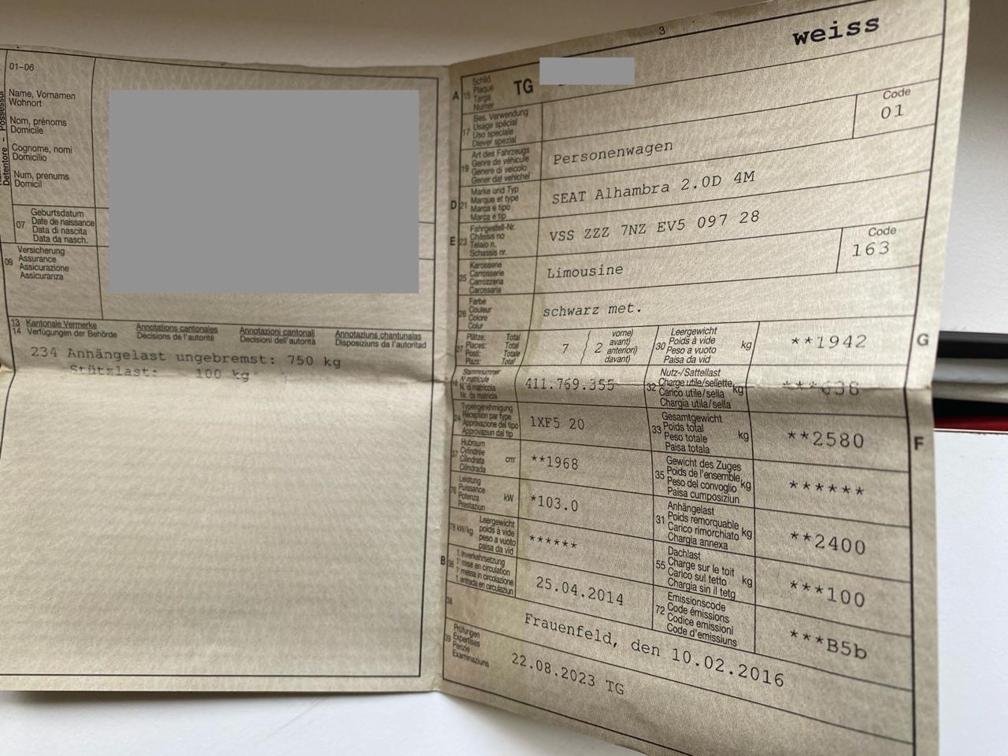 01-06
Name, Vornamen
Wohnort
Nom, prénoms
Domicile
Cognome, nomi
Domicilio
Num, prenums
Domicil
07 Geburtsdatum
Date de naissance
Data di nascita
Data da nasch.
09 Versicherung
Assurance
Assicurazione
Assicuranza
13 Kantonale Vermerke Annotations cantonales Annotazioni cantonali Annotaziuns chantunalas
14 Verfügungen der Behörde Décisions de l'autorité Decisioni dell'autorità Disposiziuns da l'autoritad
234 Anhängelast ungebremst: 750 kg
Stützlast: 100 kg
3
weiss
A 15 Schild
Plaque
Targa
Numer
TG
17 Bes. Verwendung
Usage spécial
Uso speciale
Diever spezial
19 Art des Fahrzeugs
Genre de véhicule
Genere di veicolo
Gener dal vehichel
Personenwagen
Code
01
D 21 Marke und Typ
Marque et type
Marca e tipo
Marca e tip
SEAT Alhambra 2.0D 4M
E 23 Fahrgestell-Nr.
Châssis no
Telaio n.
Schassis nr.
VSS ZZZ 7NZ EV5 097 28
25 Karosserie
Carrosserie
Carrozzeria
Carosseria
Limousine
Code
163
26 Farbe
Couleur
Colore
Colur
schwarz met.
27 Plätze: Total
Places: Total
Posti: Totale
Plazs: Total
7 ( 2 vorne)
avant)
anteriori)
davant)
30 Leergewicht
Poids à vide
Peso a vuoto
Paisa da vid
kg
**1942
G
Stammnummer
N° matricule
N. di matricola
Nr. da matricla
411.769.355
32 Nutz-/Sattellast
Charge utile/sellette
Carico utile/sella
Chargia utila/sella
kg
***638
24 Typengenehmigung
Réception par type
Approvazione del tipo
Approvaziun dal tip
1XF5 20
33 Gesamtgewicht
Poids total
Peso totale
Paisa totala
kg
**2580
F
37 Hubraum
Cylindrée
Cilindrata
Cilindrada
cm³
**1968
35 Gewicht des Zuges
Poids de l'ensemble
Peso del convoglio
Paisa cumposiziun
kg
******
76 Leistung
Puissance
Potenza
Prestaziun
kW
*103.0
31 Anhängelast
Poids remorquable
Carico rimorchiato
Chargia annexa
kg
**2400
78 kW/kg Leergewicht
poids à vide
peso a vuoto
paisa da vid
******
55 Dachlast
Charge sur le toit
Carico sul tetto
Chargia sin il tetg
kg
***100
B 36 1. Inverkehrsetzung
1re mise en circulation
1a messa in circolazione
1. entrada en circulaziun
25.04.2014
72 Emissionscode
Code émissions
Codice emissioni
Code d'emissiuns
***B5b
38
Frauenfeld, den 10.02.2016
39 Prüfungen
Expertises
Perizie
Examinaziuns
22.08.2023 TG